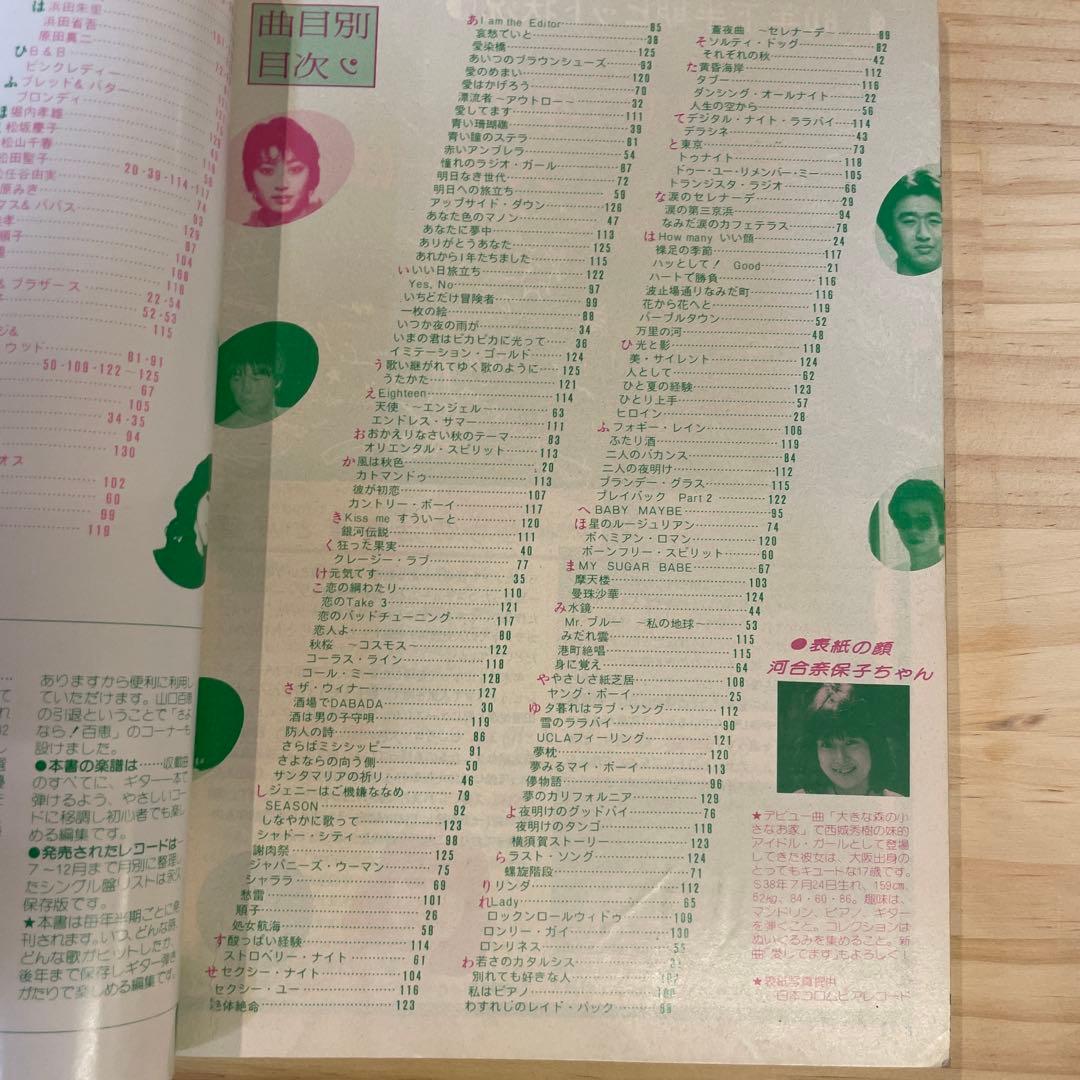 は浜田朱里
浜田省吾
原田真二
ひB＆B
ピンクレディー
ふブレッド＆バター
ブロンディ
ほ堀内孝雄
松坂慶子
松山千春
松田聖子
任谷由実 20・39・114・117
原みき 74
マス＆パパス 93
孝 129
順子 67
104
106
＆ブラザース 116
22・54
52・53
115
ジ＆
ウッド 81・91
50・109・122〜125
67
105
34・35
94
130
オス
102
60
99
119
ありますから便利に利用し
ていただけます。山口百恵
の引退ということで「さよ
なら！百恵」のコーナーも
設けました。
●本書の楽譜は……収載曲
のすべてに、ギター一本で
弾けるよう、やさしいコー
ドに移調し初心者でも楽し
める編集です。
●発売されたレコードは…
7〜12月まで月別に整理し
たシングル盤リストは永久
保存版です。
★本書は毎年半期ごとに発
刊されます。いつ、どんな時
どんな歌がヒットしたか、
後年まで保存しギター弾き
がたりで楽しめる編集です。
曲目別
目次
あI am the Editor 85
哀愁でいと 38
愛染橋 125
あいつのブラウンシューズ 63
愛のめまい 120
愛はかげろう 70
漂流者 〜アウトロー〜 32
愛してます 111
青い珊瑚礁 39
青い瞳のステラ 81
赤いアンブレラ 54
憧れのラジオ・ガール 67
明日なき世代 72
明日への旅立ち 59
アップサイド・ダウン 126
あなた色のマノン 47
あなたに夢中 113
ありがとうあなた 125
あれから1年たちました 115
いいい日旅立ち 122
Yes, No 97
いちどだけ冒険者 99
一枚の絵 88
いつか夜の雨が 34
いまの君はピカピカに光って 36
イミテーション・ゴールド 124
う歌い継がれてゆく歌のように 125
うたかた 121
えEighteen 114
天使 〜エンジェル〜 63
エンドレス・サマー 111
おおかえりなさい秋のテーマ 83
オリエンタル・スピリット 113
か風は秋色 20
カトマンドゥ 113
彼が初恋 107
カントリー・ボーイ 117
きKiss me すうぃーと 120
銀河伝説 111
く狂った果実 40
クレージー・ラブ 77
け元気です 35
こ恋の綱わたり 110
恋のTake 3 121
恋のバッドチューニング 117
恋人よ 80
秋桜 〜コスモス〜 122
コーラス・ライン 118
コール・ミー 128
さザ・ウィナー 127
酒場でDABADA 30
酒は男の子守唄 119
防人の詩 86
さらばミシシッピー 91
さよならの向う側 50
サンタマリアの祈り 46
しジェニーはご機嫌ななめ 79
SEASON 92
しなやかに歌って 123
シャドー・シティ 98
謝肉祭 125
ジャパニーズ・ウーマン 75
シャララ 69
愁雷 101
順子 26
処女航海 58
す酸っぱい経験 114
ストロベリー・ナイト 61
せセクシー・ナイト 104
セクシー・ユー 116
絶体絶命 123
蒼夜曲 〜セレナーデ〜 89
そソルティ・ドッグ 82
それぞれの秋 42
た黄昏海岸 112
タブー 116
ダンシング・オールナイト 22
人生の空から 56
てデジタル・ナイト・ララバイ 114
デラシネ 43
と東京 73
トゥナイト 118
ドゥー・ユー・リメンバー・ミー 105
トランジスタ・ラジオ 66
な涙のセレナーデ 29
涙の第三京浜 94
なみだ涙のカフェテラス 78
はHow many いい顔 24
裸足の季節 117
ハッとして！ Good 21
ハートで勝負 116
波止場通りなみだ町 116
花から花へと 119
パープルタウン 52
万里の河 48
ひ光と影 118
美・サイレント 124
人として 62
ひと夏の経験 123
ひとり上手 57
ヒロイン 28
ふフォギー・レイン 106
ふたり酒 119
二人のバカンス 84
二人の夜明け 112
ブランデー・グラス 115
プレイバック Part 2 122
へBABY MAYBE 95
ほ星のルージュリアン 74
ボヘミアン・ロマン 120
ボーンフリー・スピリット 60
まMY SUGAR BABE 67
摩天楼 103
曼珠沙華 124
み水鏡 44
Mr. ブルー 〜私の地球〜 53
みだれ雲 115
港町絶唱 115
身に覚え 64
ややさしさ紙芝居 108
ヤング・ボーイ 25
ゆ夕暮れはラブ・ソング 112
雪のララバイ 90
UCLAフィーリング 121
夢枕 120
夢みるマイ・ボーイ 113
儚物語 96
夢のカリフォルニア 129
よ夜明けのグッドバイ 76
夜明けのタンゴ 118
横須賀ストーリー 123
らラスト・ソング 124
螺旋階段 71
りリンダ 112
れLady 65
ロックンロールウィドゥ 109
ロンリー・ガイ 130
ロンリネス 55
わ若さのカタルシス
別れても好きな人
私はピアノ
わすれじのレイド・バック
●表紙の顔
河合奈保子ちゃん
★デビュー曲「大きな森の小
さなお家」で西城秀樹の妹的
アイドル・ガールとして登場
してきた彼女は、大阪出身の
とってもキュートな17歳です。
S38年7月24日生れ、159㎝、
52㎏、84・60・86。趣味は、
マンドリン、ピアノ、ギター
を弾くこと。コレクションは
ぬいぐるみを集めること。新
曲「愛してます」もよろしく！
★表紙写真提供
日本コロムビアレコード